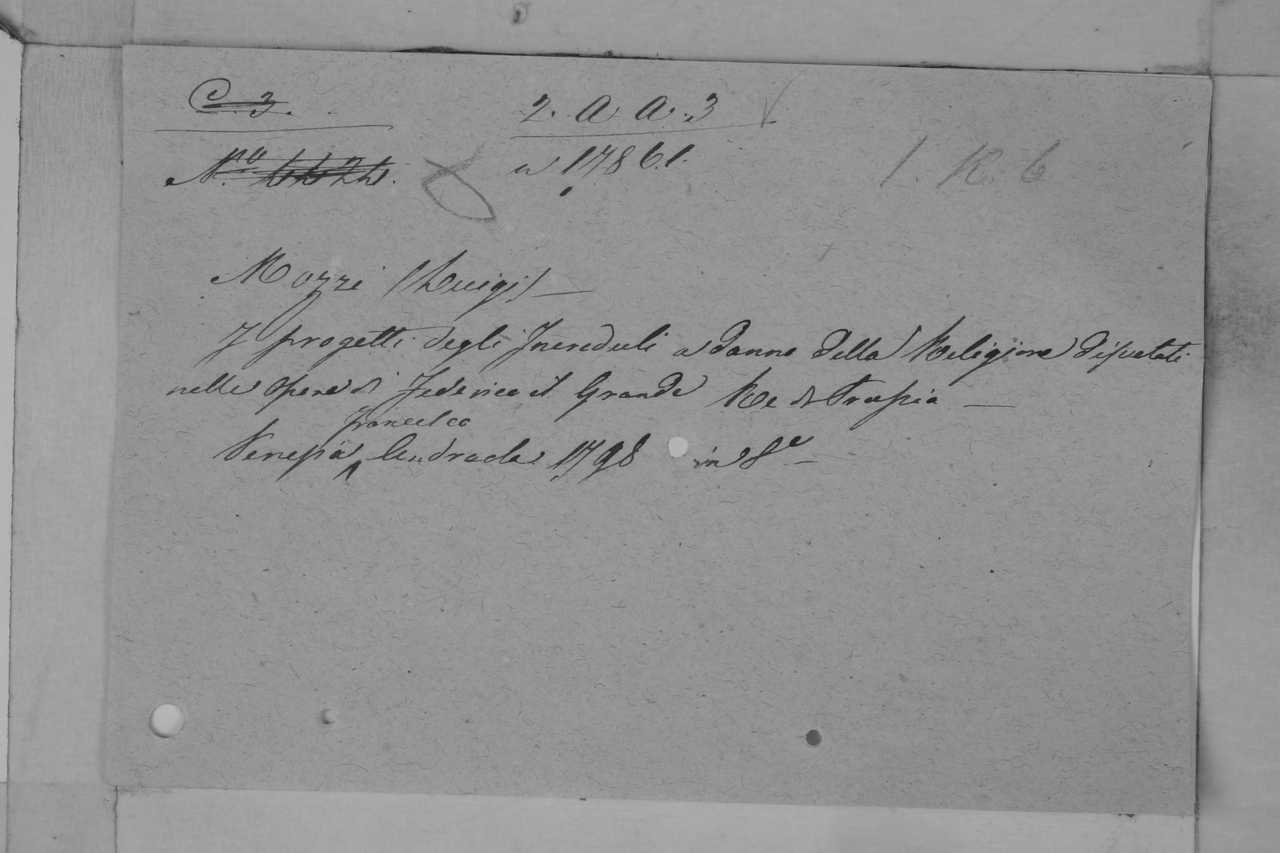 C. 3. 2. A A. 3
Nº 4424. n 17861. 1. K. 6
Mozzi (Luigi) —
I progetti degli Increduli a danno della Religione disvelati
nelle opere di Federico il Grande Re di Prussia —
Francesco
Venezia Andreola 1798 in 8º —